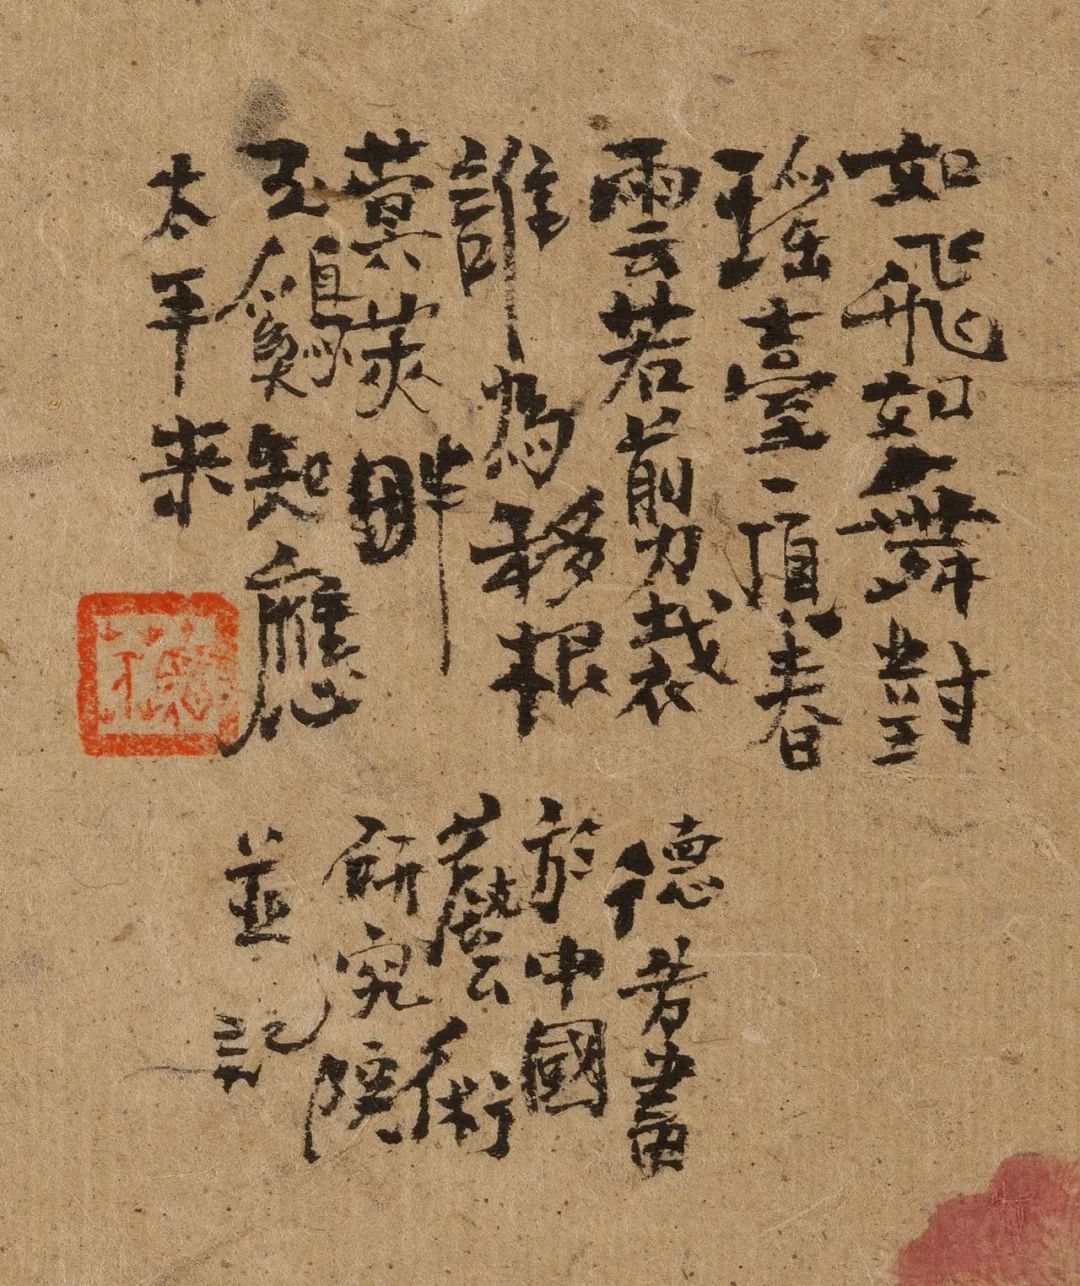 如飛如舞對
瑶臺一頂春
雲若剪裁
誰為移根
蓂莢畔
玉鷄知應
太平来
德芳畫
於中國
藝術
研究院
並記